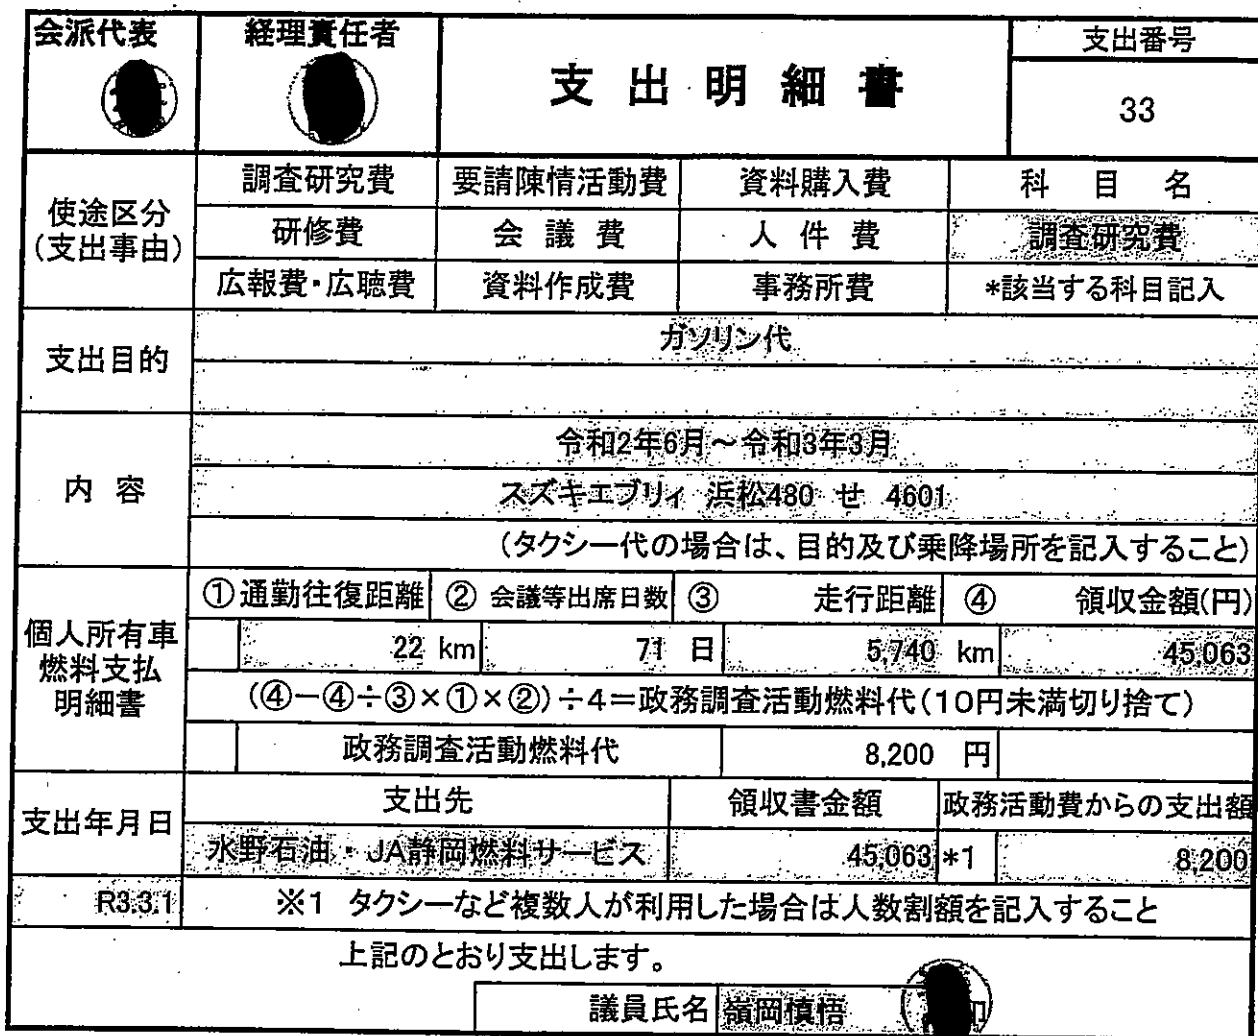 会派代表 経理責任者 支出明細書 支出番号
33
使途区分(支出事由) 調査研究費 要請陳情活動費 資料購入費 科目名
研修費 会議費 人件費 調査研究費
広報費・広聴費 資料作成費 事務所費 *該当する科目記入
支出目的 ガソリン代
内容 令和2年6月~令和3年3月
スズキエブリィ 浜松480 せ 4601
(タクシー代の場合は、目的及び乗降場所を記入すること)
個人所有車燃料支払明細書 ①通勤往復距離 ② 会議等出席日数 ③ 走行距離 ④ 領収金額(円)
22 km 71 日 5,740 km 45,063
(④-④÷③×①×②)÷4=政務調査活動燃料代(10円未満切り捨て)
政務調査活動燃料代 8,200 円
支出年月日 支出先 領収書金額 政務活動費からの支出額
水野石油・JA静岡燃料サービス 45,063 *1 8,200
R3.3.1 ※1 タクシーなど複数人が利用した場合は人数割額を記入すること
上記のとおり支出します。
議員氏名 嶺岡慎悟 印